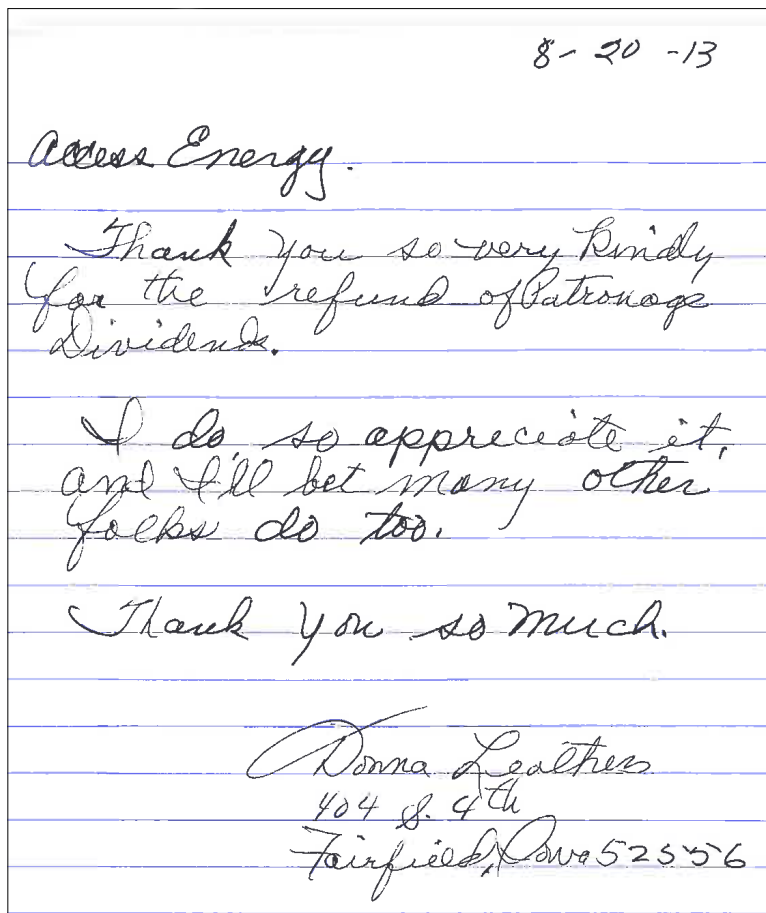 8-20-13
Access Energy.
Thank you so very kindly
for the refund of Patronage
Dividends.
I do so appreciate it,
and I'll bet many other
folks do too.
Thank you so much.
Donna Leathers
404 S. 4th
Fairfield, Iowa 52556